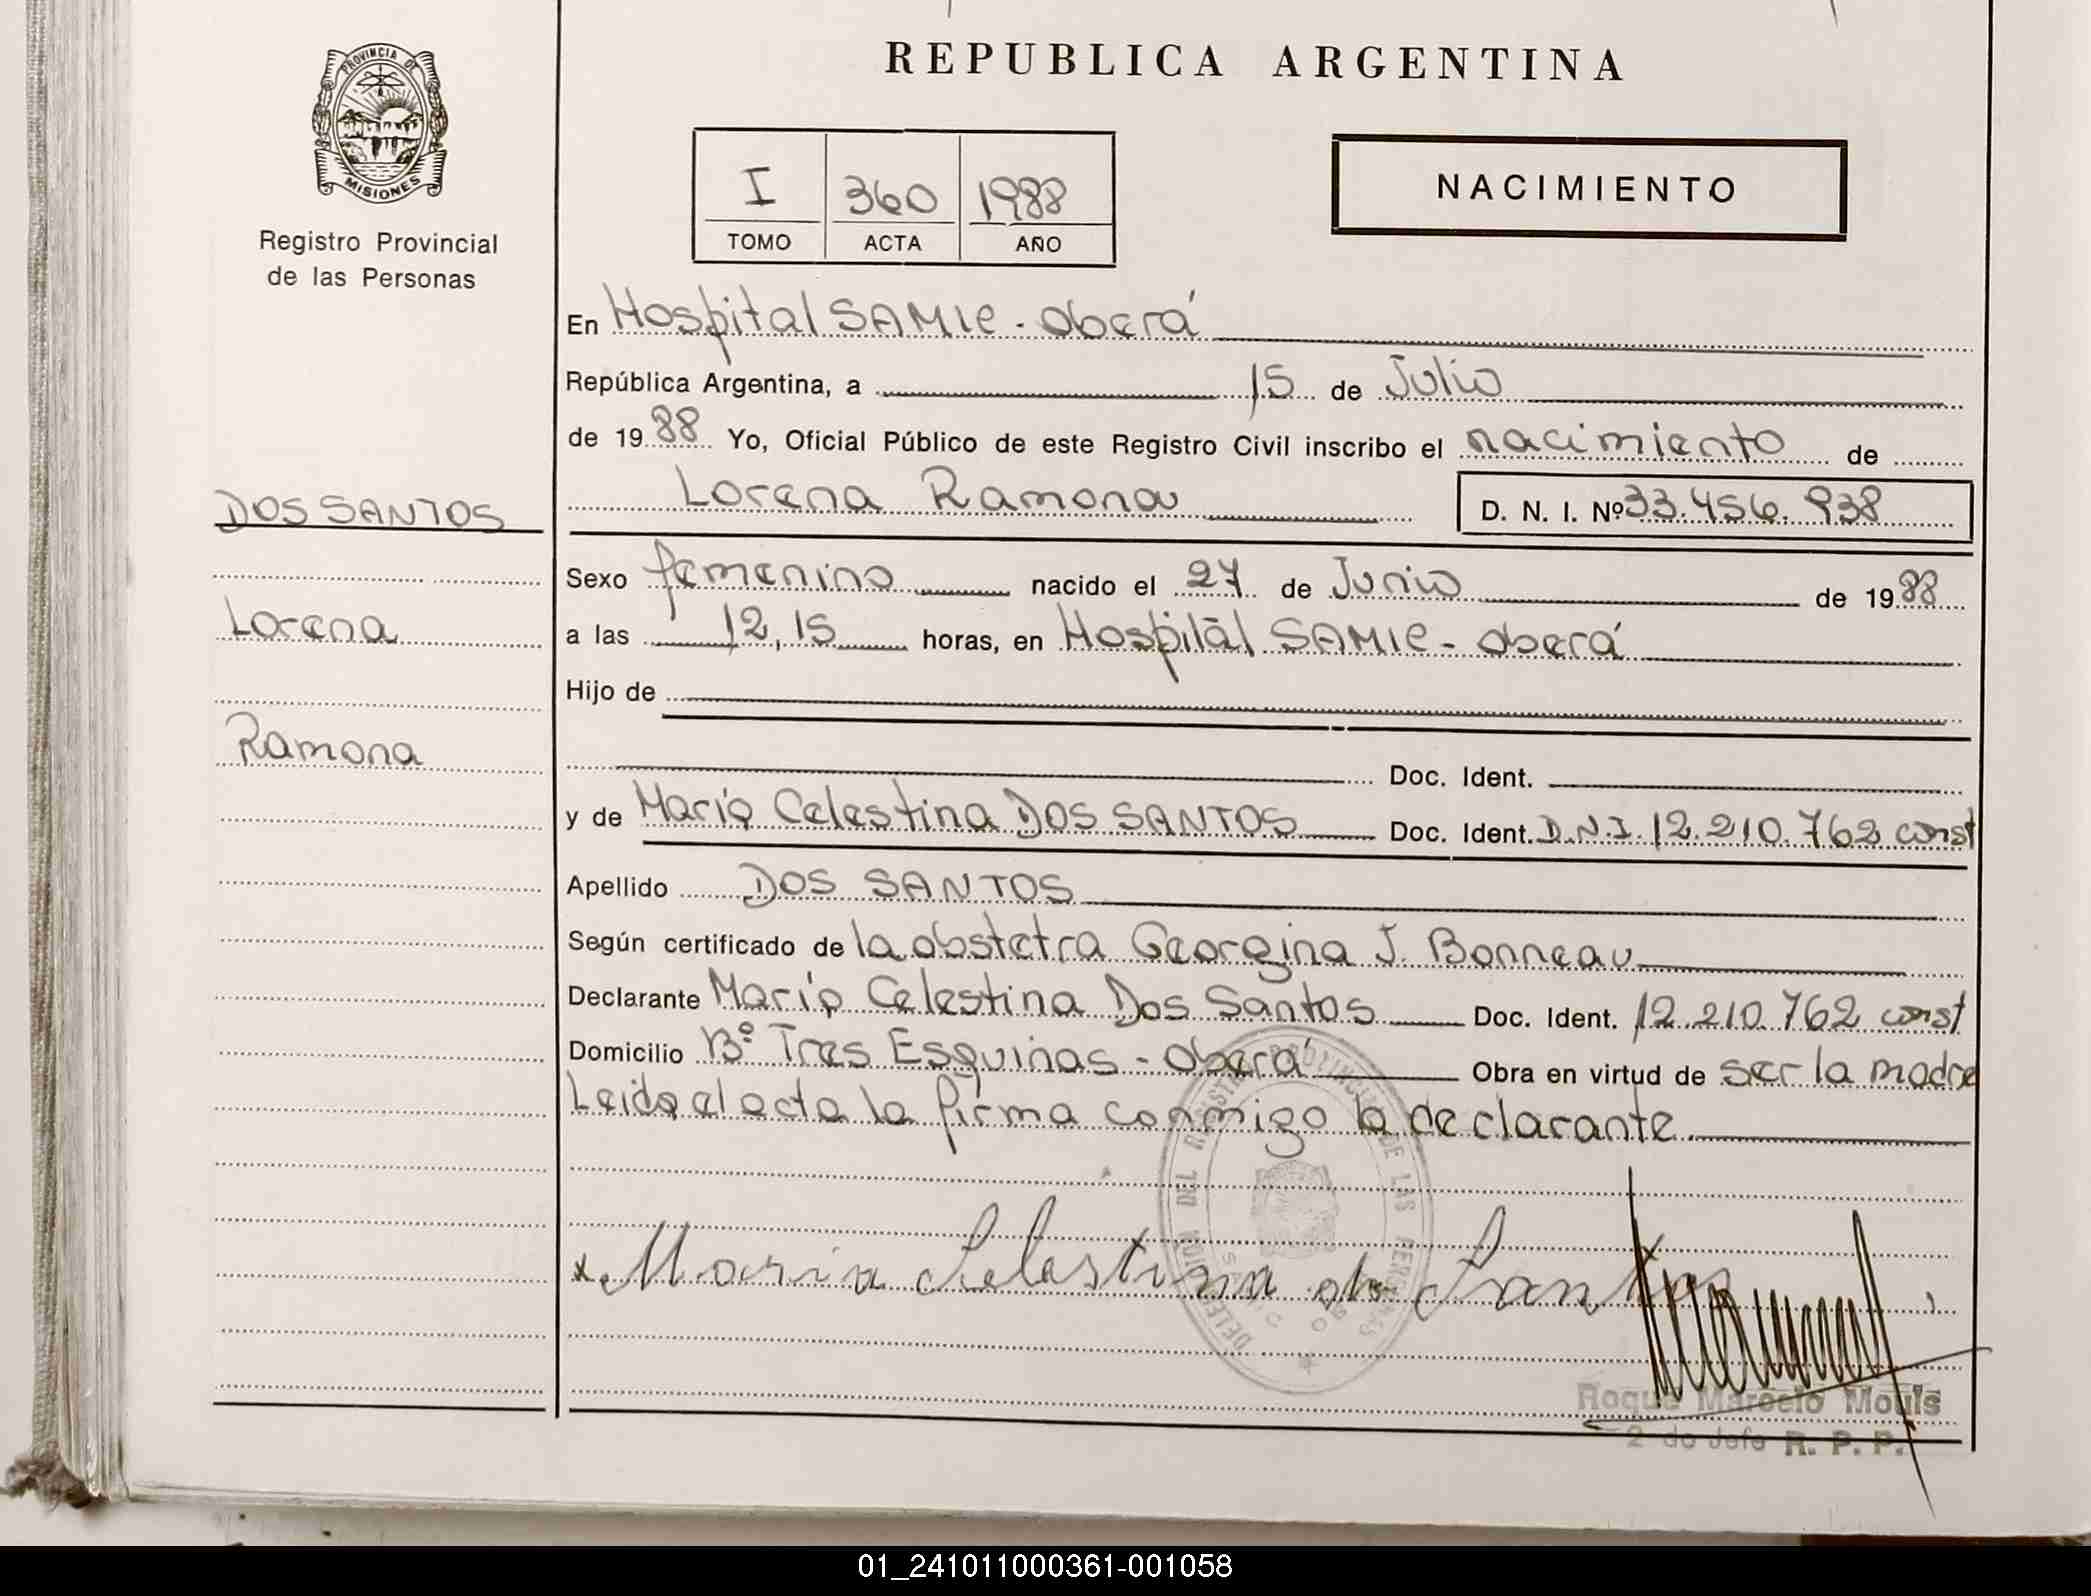 REPUBLICA ARGENTINA
PROVINCIA DE
MISIONES
Registro Provincial
de las Personas
I 360 1988
TOMO ACTA AÑO
NACIMIENTO
En Hospital SAMIC - Oberá
República Argentina, a 15 de Julio
de 1988 Yo, Oficial Público de este Registro Civil inscribo el nacimiento de
DOS SANTOS
Lorena Ramona D. N. I. Nº 33.456.938
Sexo femenino nacido el 27 de Junio de 1988
Lorena
a las 12,15 horas, en Hospital SAMIC - Oberá
Hijo de
Ramona
Doc. Ident.
y de María Celestina DOS SANTOS Doc. Ident. D.N.I. 12.210.762 const
Apellido DOS SANTOS
Según certificado de la obstetra Georgina J. Bonneau
Declarante María Celestina Dos Santos Doc. Ident. 12.210.762 const
Domicilio Bº Tres Esquinas - Oberá Obra en virtud de ser la madre
Leida el acta la firma conmigo la declarante
x Maria Selestina do Santos
Roque Marcelo Mouis
2 do Jefe R. P. P.
01_241011000361-001058